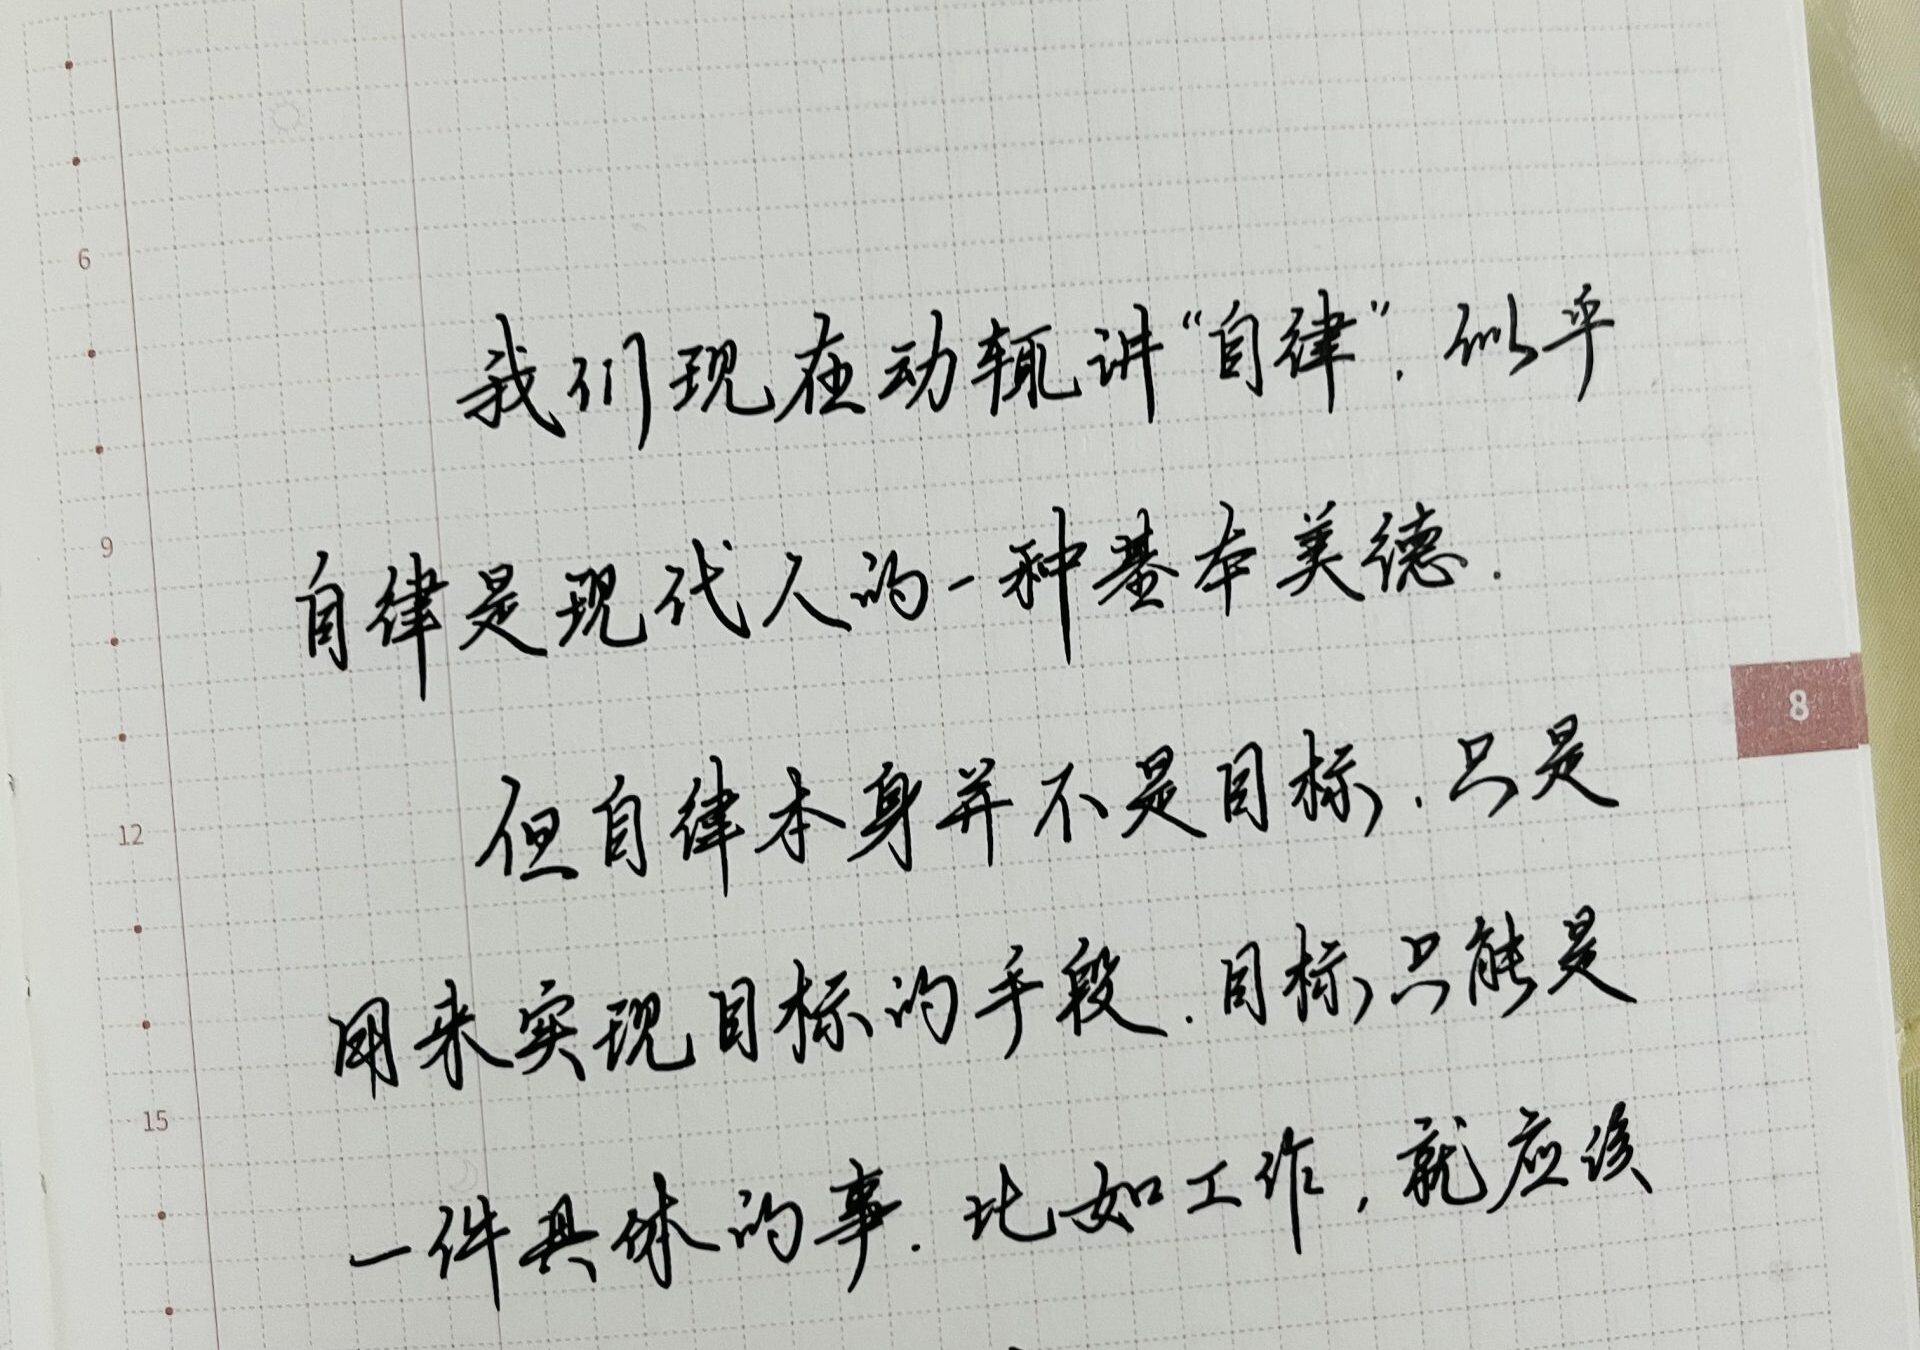 6
我们现在动辄讲“自律”. 似乎
9
自律是现代人的一种基本美德.
8
但自律本身并不是目标. 只是
12
用来实现目标的手段. 目标只能是
15
一件具体的事. 比如工作, 就应该